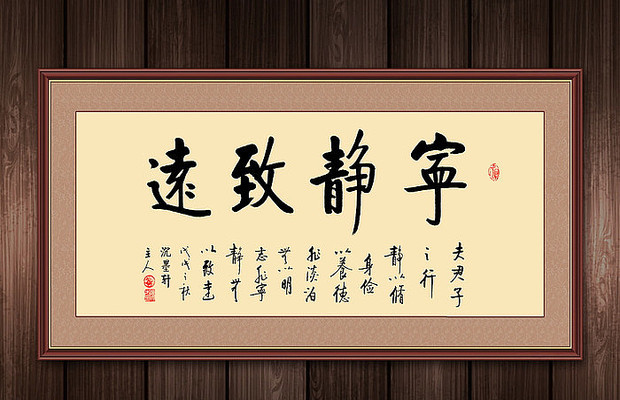 寧静致遠
夫君子
之行
静以脩
身儉
以養德
非淡泊
無以明
志非寧
静無
以致遠
戊戌之秋
沉墨軒
主人